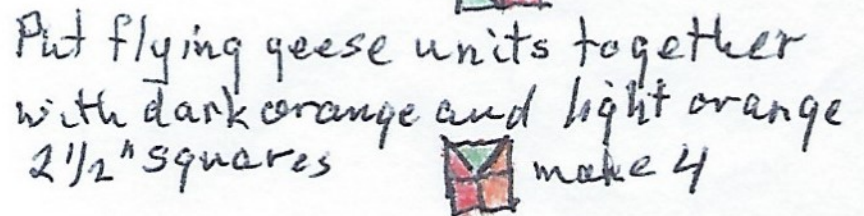 Put flying geese units together
with dark orange and light orange
2 1/2" squares make 4